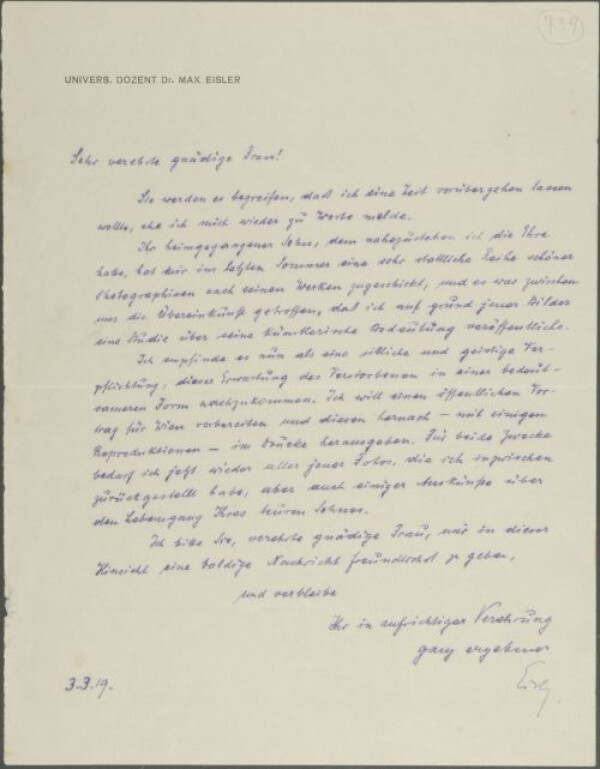 739
UNIVERS. DOZENT Dr. MAX EISLER
Sehr verehrte gnädige Frau!
Sie werden es begreifen, daß ich eine Zeit vorübergehen lassen
wollte, ehe ich mich wieder zu Worte melde.
Ihr heimgegangener Sohn, dem nahezustehen ich die Ehre
habe, hat mir im letzten Sommer eine sehr stattliche Reihe schöner
Photographien nach seinen Werken zugeschickt, und es war zwischen
uns die Übereinkunft getroffen, daß ich auf grund jener Bilder
eine Studie über seine künstlerische Bedeutung veröffentliche.
Ich empfinde es nun als eine sittliche und geistige Ver-
pflichtung, dieser Erwartung des Verstorbenen in einer bedeut-
sameren Form nachzukommen. Ich will einen öffentlichen Vor-
trag für Wien vorbereiten und diesen hernach – mit einigen
Reproduktionen – im Drucke herausgeben. Für beide Zwecke
bedarf ich jetzt wieder aller jener Fotos, die ich inzwischen
zurückgestellt habe, aber auch einiger Auskünfte über
den Lebensgang Ihres teuren Sohnes.
Ich bitte Sie, verehrte gnädige Frau, mir in dieser
Hinsicht eine baldige Nachricht freundlichst zu geben,
und verbleibe
Ihr in aufrichtiger Verehrung
ganz ergebener
3.3.19.